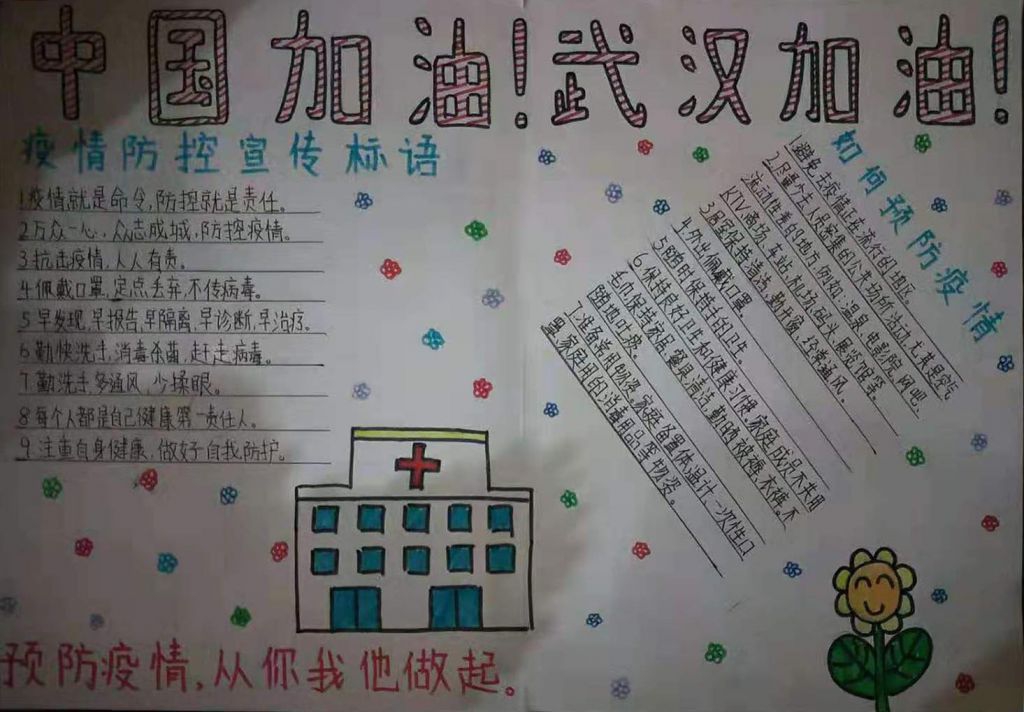 中国加油!武汉加油!
疫情防控宣传标语
1疫情就是命令,防控就是责任。
2万众一心,众志成城,防控疫情。
3抗击疫情,人人有责。
4.佩戴口罩,定点丢弃,不传病毒。
5早发现,早报告,早隔离,早诊断,早治疗。
6勤快洗手,消毒杀菌,赶走病毒。
7.勤洗手,多通风,少揉眼。
8每个人都是自己健康第一责任人。
9.注重自身健康,做好自我防护。
预防疫情,从你我他做起。
如何预防疫情
1.避免去疫情正在流行的地区。
2.尽量少去人员密集的公共场所活动,尤其是空气
流动性差的地方,例如:温泉,电影院,网吧,
KTV,商场,车站,机场,码头,展览馆等。
3.居室保持清洁,勤开窗,经常通风。
4.外出佩戴口罩
5.随时保持手的卫生。
6保持良好卫生和健康习惯,家庭成员不共用
毛巾,保持家居,餐具清洁,勤晒被褥,衣裤,不
随地吐痰。
7.准备常用物资。家庭备置体温计,一次性口
罩,家庭用的消毒用品等物资。